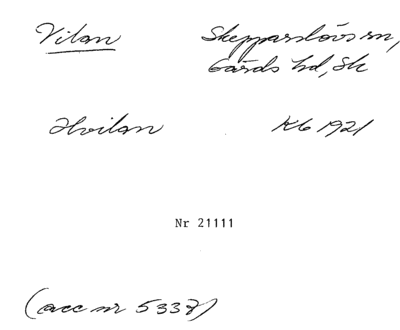 Vilan Skepparslövs sn,
Gärds hd, Sk
Hvilan Kb 1921
Nr 21111
(acc nr 5337)